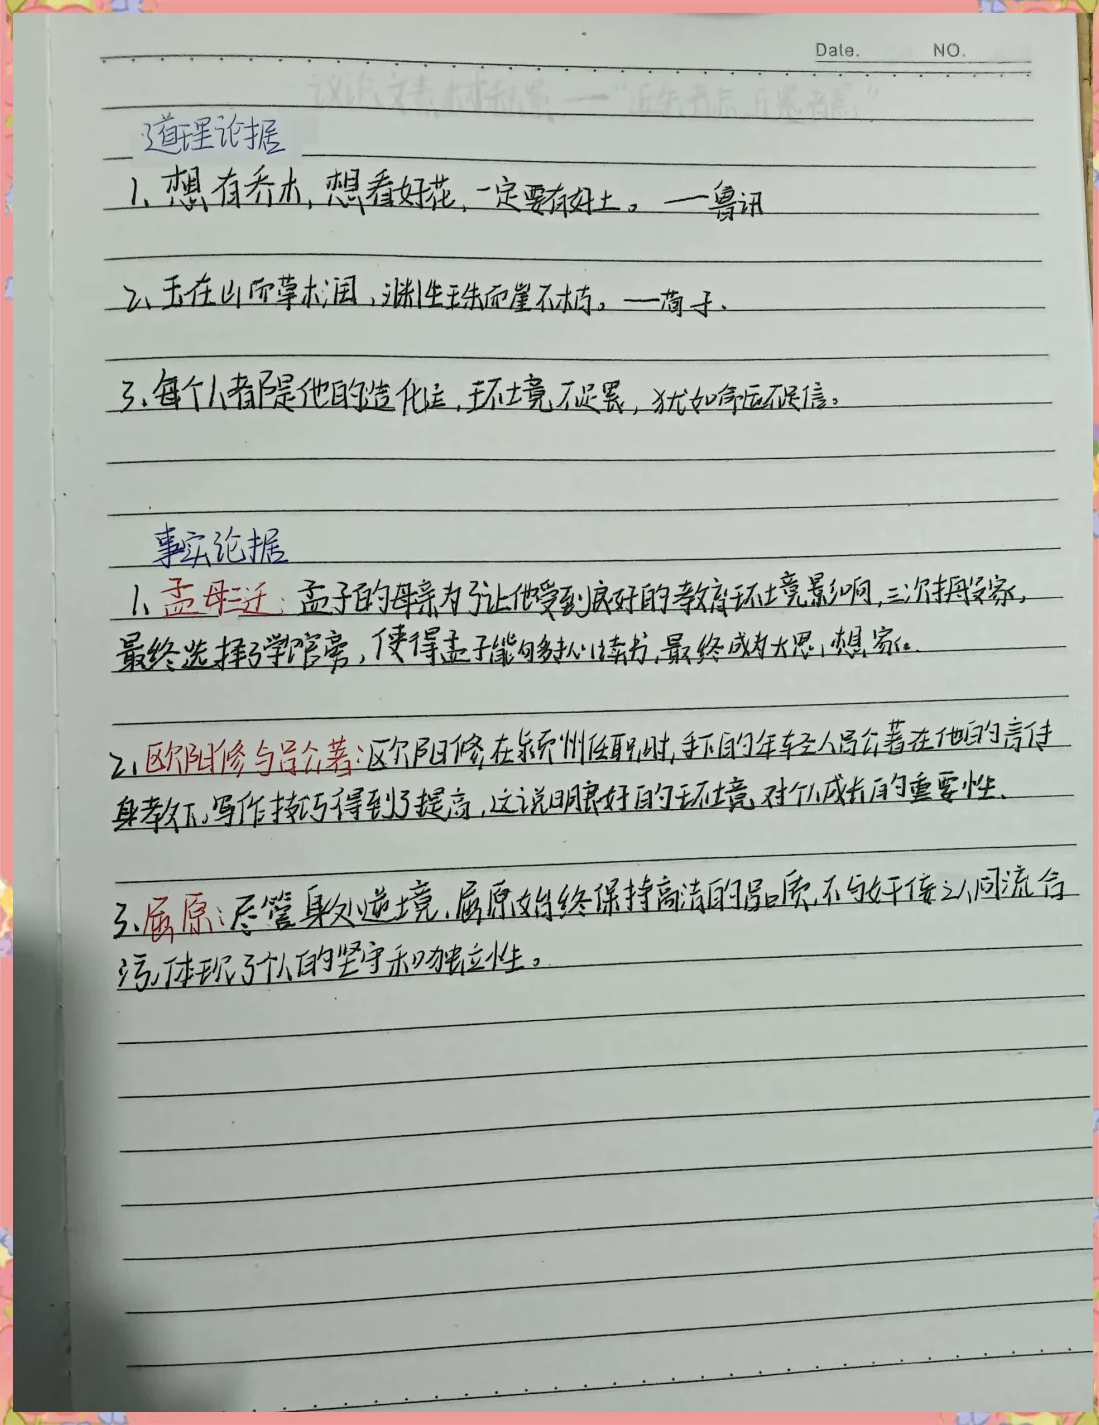 Date. NO.
道理论据
1、想有乔木,想看好花,一定要有好土。——鲁讯
2、玉在山而草木润,渊生玉珠而崖不枯。——荀子.
3、每个人都是他的造化主,环境不足累,犹如命运不足信。
事实论据
1、孟母三迁:孟子的母亲为了让他受到良好的教育环境影响,三次搬家,
最终选择了学馆旁,使得孟子能够耐心读书,最终成为大思想家。
2、欧阳修与吕公著:欧阳修在颍州任职时,手下的年轻人吕公著在他的言传
身教下,写作技巧得到了提高,这说明良好的环境对个人成长的重要性、
3、屈原:尽管身处逆境,屈原始终保持高洁的品质,不与奸佞之人同流合
污,体现了个人的坚守和独立性。